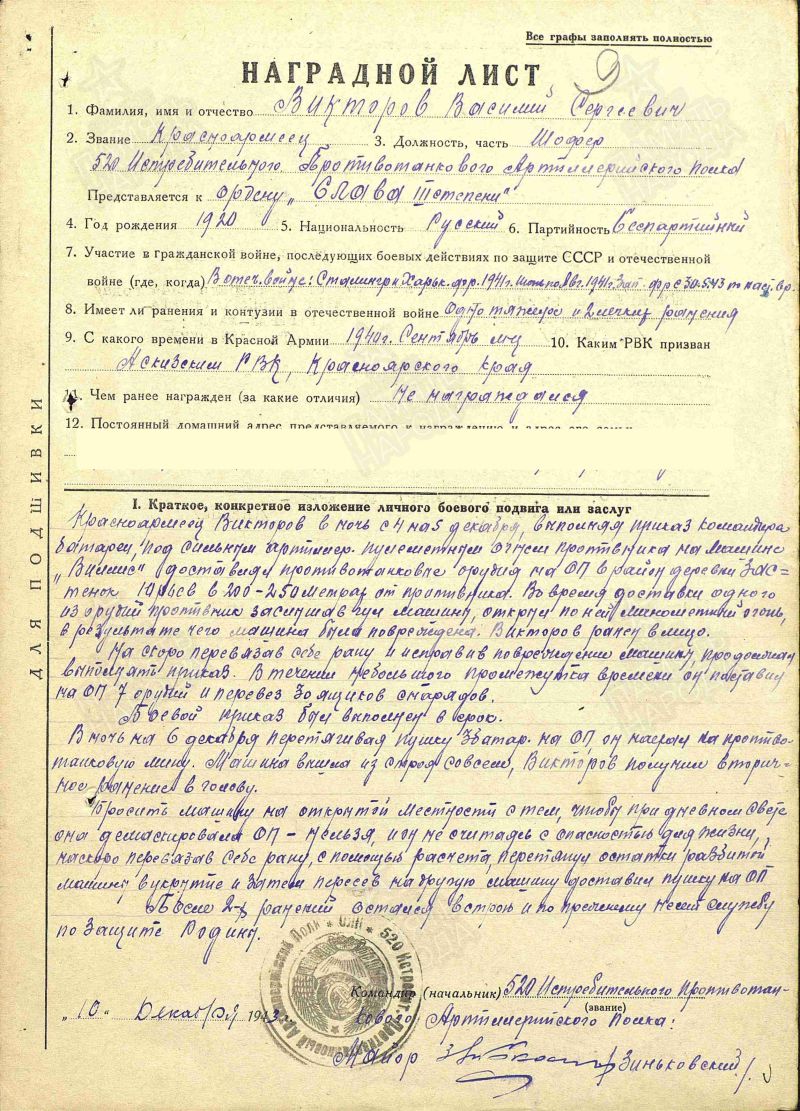 Все графы заполнять полностью
9
НАГРАДНОЙ ЛИСТ
1. Фамилия, имя и отчество Викторов Василий Сергеевич
2. Звание Красноармеец 3. Должность, часть Шофер
520 Истребительного Противотанкового Артиллерийского Полка
Представляется к ордену „СЛАВА III степени"
4. Год рождения 1920 5. Национальность Русский 6. Партийность Беспартийный
7. Участие в гражданской войне, последующих боевых действиях по защите СССР и отечественной
войне (где, когда) В отеч. войне: Сталингр и Харьк. фр. 1941г. июнь по Авг. 1941г. Зап. фр с 30.5.43 по наст. вр.
8. Имеет ли ранения и контузии в отечественной войне Одно тяжелое и 2 легких ранения
9. С какого времени в Красной Армии 1940г. Сентябрь м-ц 10. Каким РВК призван
Аскизским РВК, Красноярского края
11. Чем ранее награжден (за какие отличия) не награждался
12. Постоянный домашний адрес представляемого к награждению и адрес его семьи
ДЛЯ ПОДШИВКИ
I. Краткое, конкретное изложение личного боевого подвига или заслуг
Красноармеец Викторов в ночь с 4 на 5 декабря, выполняя приказ командира
батареи, под сильным артиллер. пулеметным огнем противника на машине
„Виллис" доставлял противотанковые орудия на ОП в район деревни Зас-
тенок Юрьев в 200-250 метрах от противника. Во время доставки одного
из орудий противник заслушав гул машины, открыл по ней минометный огонь,
в результате чего машина была повреждена. Викторов ранен в лицо.
На скоро перевязав себе рану и исправив повреждение машины, продолжал
выполнять приказ. В течении небольшого промежутка времени он поставил
на ОП 7 орудий и перевез 30 ящиков снарядов.
Боевой приказ был выполнен в срок.
В ночь на 6 декабря перетягивая пушку 3 батар. на ОП он наехал на противо-
танковую мину. Машина вышла из строя совсем, Викторов получил вторич-
ное ранение в голову.
Бросить машину на открытой местности с тем, чтобы при дневном свете
она демаскировала ОП - нельзя, и он не считаясь с опасностью для жизни,
наскоро перевязав себе рану, с помощью расчета, перетянул остатки разбитой
машины в укрытие и затем пересев на другую машину доставил пушку на ОП
После 2-х ранений остался в строю и по прежнему несет службу
по защите Родины.
Командир (начальник) 520 Истребительного Противотан-
(звание)
„10" Декабря 1943г. кового Артиллерийского Полка:
Майор /Зиньковский/